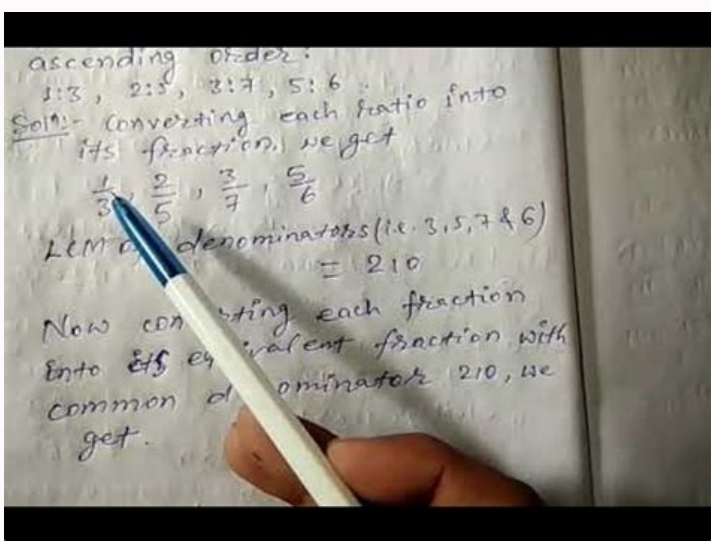 ascending order:
1:3, 2:5, 3:7, 5:6
Solⁿ:- Converting each ratio into
its fraction, we get
1/3, 2/5, 3/7, 5/6
LCM denominators (i.e. 3, 5, 7 & 6)
= 210
Now each fraction
into its fraction with
common 210, we
get.